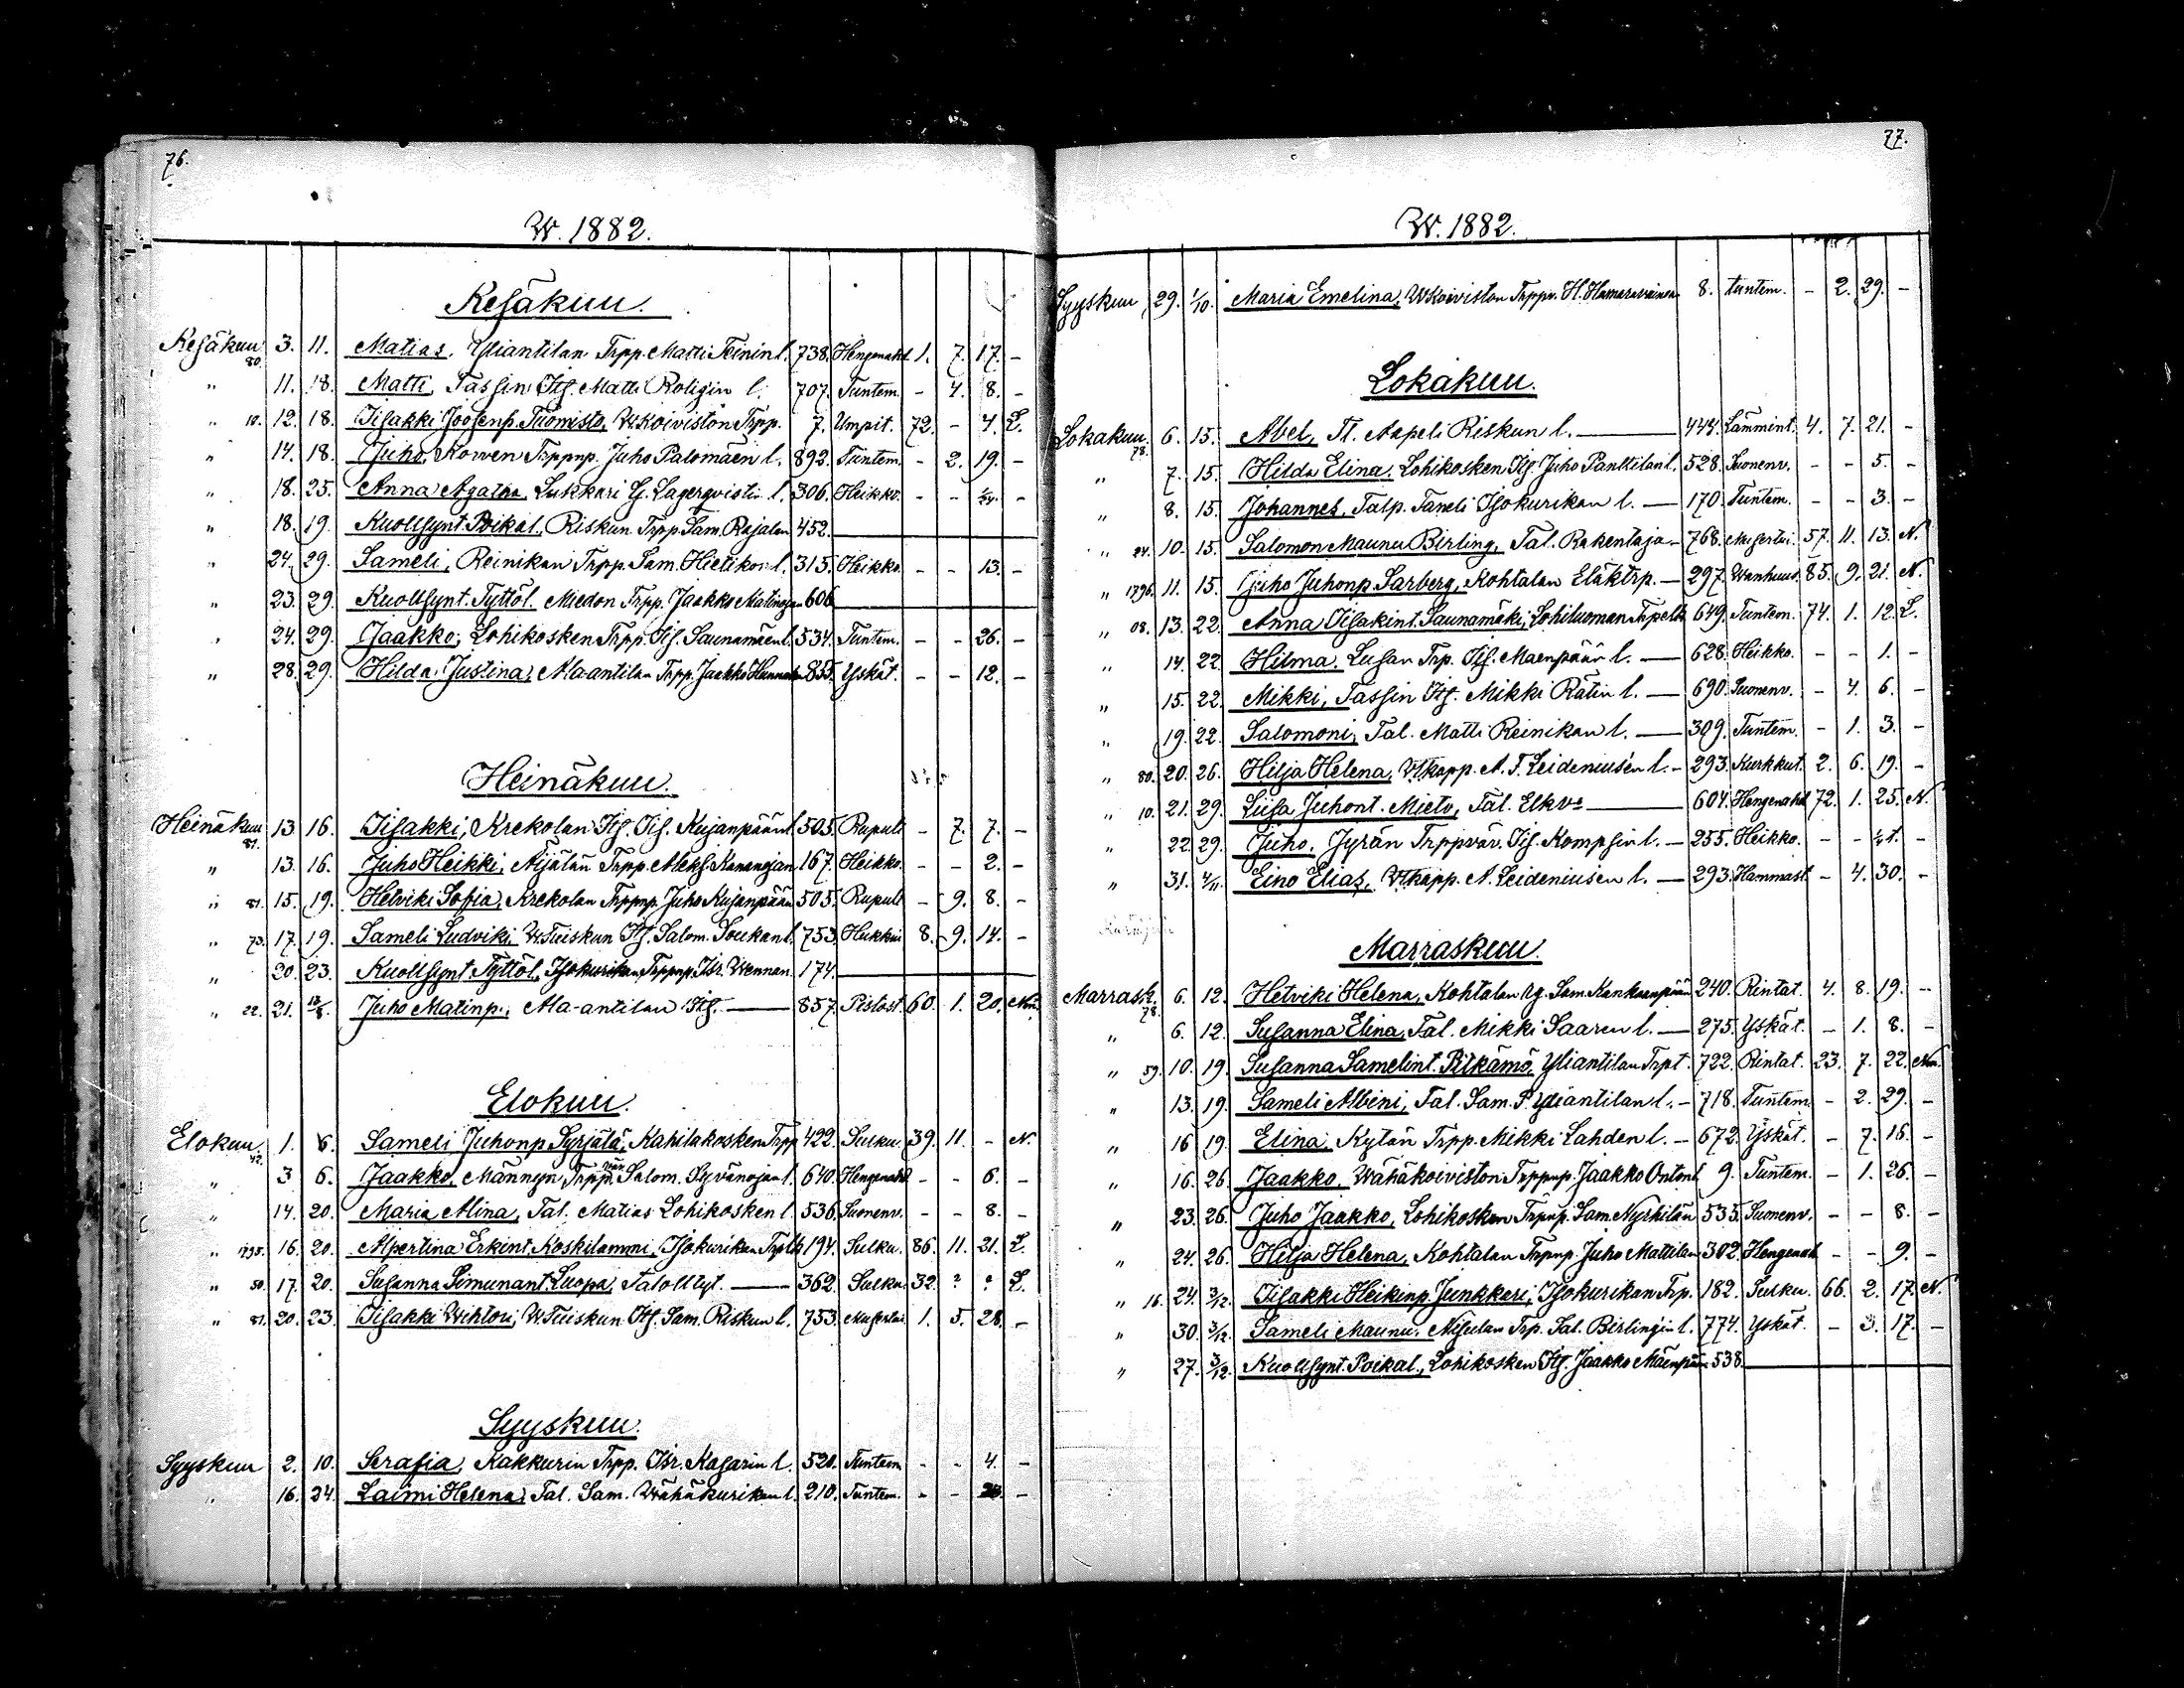 76.
W. 1882.
Kesäkuu.
Kesäkuu 80. 3. 11. Matias, Yliantilan Trpp. Matti Teinin l. 738. Hengenahd. 1. 7. 17. -
" 11. 18. Matti, Tassin Its. Matti Roligin l. 707. Tuntem. - 4. 8. -
" 10. 12. 18. Iisakki Joosenp. Tuomisto, W.Koiviston Trpp. 7. Umpit. 72. - 4. L.
" 14. 18. Juho, Kowen Trppnp. Juho Palomäen l. 892. Tuntem. - 2. 19. -
" 18. 25. Anna Agatha, Lukkari G. Lagerqvistin l. 306. Heikko. - - -
" 18. 19. Kuollsynt. Poikal. Riskun Trpp. Sam. Rajalan 452.
" 24. 29. Sameli, Reinikan Trpp. Sam. Hietikon l. 315. Heikko. - - 13. -
" 23. 29. Kuollsynt. Tyttöl. Miedon Trpp. Jaakko Matinojan 606
" 24. 29. Jaakko, Lohikosken Trpp. Iis. Saunamäen l. 534. Tuntem. - - 26. -
" 28. 29. Hilda Justina, Ala-antilan Trpp. Jaakko 855. Yskät. - - 12. -
Heinäkuu.
Heinäkuu 81. 13 16. Iisakki, Krekolan Its. Iis. Kujanpään l. 505. Rupuli - 7. 7. -
" 13. 16. Juho Heikki, Äijälän Trpp. Aleks. Kananojan 167. Heikko. - - 2. -
" 81. 15. 19. Hetviki Sofia, Krekolan Trppnp. Juho Kujanpään 505. Rupuli - 9. 8. -
" 73. 17. 19. Sameli Ludviki, W.Tuiskun Its. Salom. Soukan l. 753. Hukkui 8. 9. 14. -
" 20. 23. Kuollsynt. Tyttöl. Isokurikan Trppnp. Isr. Wennan. 174.
" 22. 21. 13/8. Juho Matinp., Ala-antilan Its. 857. Pistost. 60. 1. 20. Nm.
Elokuu.
Elokuu. 42. 1. 6. Sameli Juhonp. Syrjälä, Kahilakosken Trpp. 422. Sulku. 39. 11. - N.
" 3 6. Jaakko, Männyn Trpp. väv. Salom. Syvänojan l. 640. Hengenahd. - - 6. -
" 14. 20. Maria Alina, Tal. Matias Lohikosken l. 536. Suonenv. - - 8. -
" 1795. 16. 20. Alpertina Erkint. Koskilammi, Isokurikan Trplk. 194. Sulku. 86. 11. 21. L.
" 50. 17. 20. Susanna Simunant. Luopa, Talolltyt. 362. Sulku. 32. ? ? L.
" 81. 20. 23. Iisakki Wihtori, W.Tuiskun Its. Sam. Riskun l. 753. 1. 5. 28. -
Syyskuu.
Syyskuu 2. 10. Serafia, Kakkurin Trpp. Isr. Kasarin l. 520. Tuntem. - - 4. -
" 16. 24. Laimi Helena, Tal. Sam. Wähäkurikan l. 210. Tuntem. - - -
77.
W. 1882.
Syyskuu 29. 1/10. Maria Emelina, W.Koiviston Trppv. H. Hamaravainen 8. tuntem. - 2. 29. -
Lokakuu.
Lokakuu. 78. 6. 15. Abel, Tl. Aapeli Riskun l. 444. Lämmint. 4. 7. 21. -
" 7. 15. Hilda Elina, Lohikosken Its. Juho Panttilan l. 528. Suonenv. - - 5. -
" 8. 15. Johannes, Talp. Taneli Isokurikan l. 170. Tuntem. - - 3. -
" 24. 10. 15. Salomon Maunu Birling, Tal. Rakentaja 768. 57. 11. 13. N.
" 1796. 11. 15. Juho Juhonp. Sarberg, Kohtalan Eläktrp. 297. Wanhuud. 85. 9. 21. N.
" 08. 13. 22. Anna Iisakint. Saunamäki, Lohiluoman Trpelk. 649. Tuntem. 74. 1. 12. L.
" 14. 22. Hilma, Lusan Trp. Iis. Mäenpään l. 628. Heikko. - - 1. -
" 15. 22. Mikki, Tassin Its. Mikki Rätin l. 690. Suonenv. - 4. 6. -
" 19. 22. Salomoni, Tal. Matti Reinikan l. 309. Tuntem. - 1. 3. -
" 80. 20. 26. Hilja Helena, Vtkapp. A. F. Leideniusen l. 293. Kurkkut. 2. 6. 19. -
" 10. 21. 29. Liisa Juhont. Mieto, Tal. Elkv. 604. Hengenahd. 72. 1. 25. N.
" 22. 29. Juho, Jyrän Trppväv. Iis. Kompsin l. 255. Heikko. - - -
" 31. 4/11. Eino Elias, Vtkapp. A. Leideniusen l. 293. Hammast. - 4. 30. -
Marraskuu.
Marrask. 78. 6. 12. Hetviki Helena, Kohtalan Sam. Kankaanpään 240. Rintat. 4. 8. 19. -
" 6. 12. Susanna Elina, Tal. Mikki Saaren l. 275. Yskät. - 1. 8. -
" 59. 10. 19. Susanna Samelint. Pitkämö, Yliantilan Trpt. 722. Rintat. 23. 7. 22. Nm.
" 13. 19. Sameli Albini, Tal. Sam. P. Yliantilan l. 718. Tuntem. - 2. 29. -
" 16 19. Elina, Kytän Trpp. Mikki Lahden l. 672. Yskät. - 7. 16. -
" 16. 26. Jaakko, Wähäkoiviston Trppnp. Jaakko Ontonl. 9. Tuntem. - 1. 26. -
" 23. 26. Juho Jaakko, Lohikosken Trpnp. Sam. Nyrhilän 535. Suonenv. - - 8. -
" 24. 26. Hilja Helena, Kohtalan Trpnp. Juho Mattilan 302. Hengenah. - - 9. -
" 16. 24. 3/12. Iisakki Heikinp. Junkkari, Isokurikan Trp. 182. Sulku. 66. 2. 17. N.
" 30. 3/12. Sameli Maunu, Nisulan Trp. Sal. Birlingin l. 774. Yskät. - 3. 17. -
" 27. 3/12. Kuollsynt. Poikal., Lohikosken Its. Jaakko Mäenpään 538.